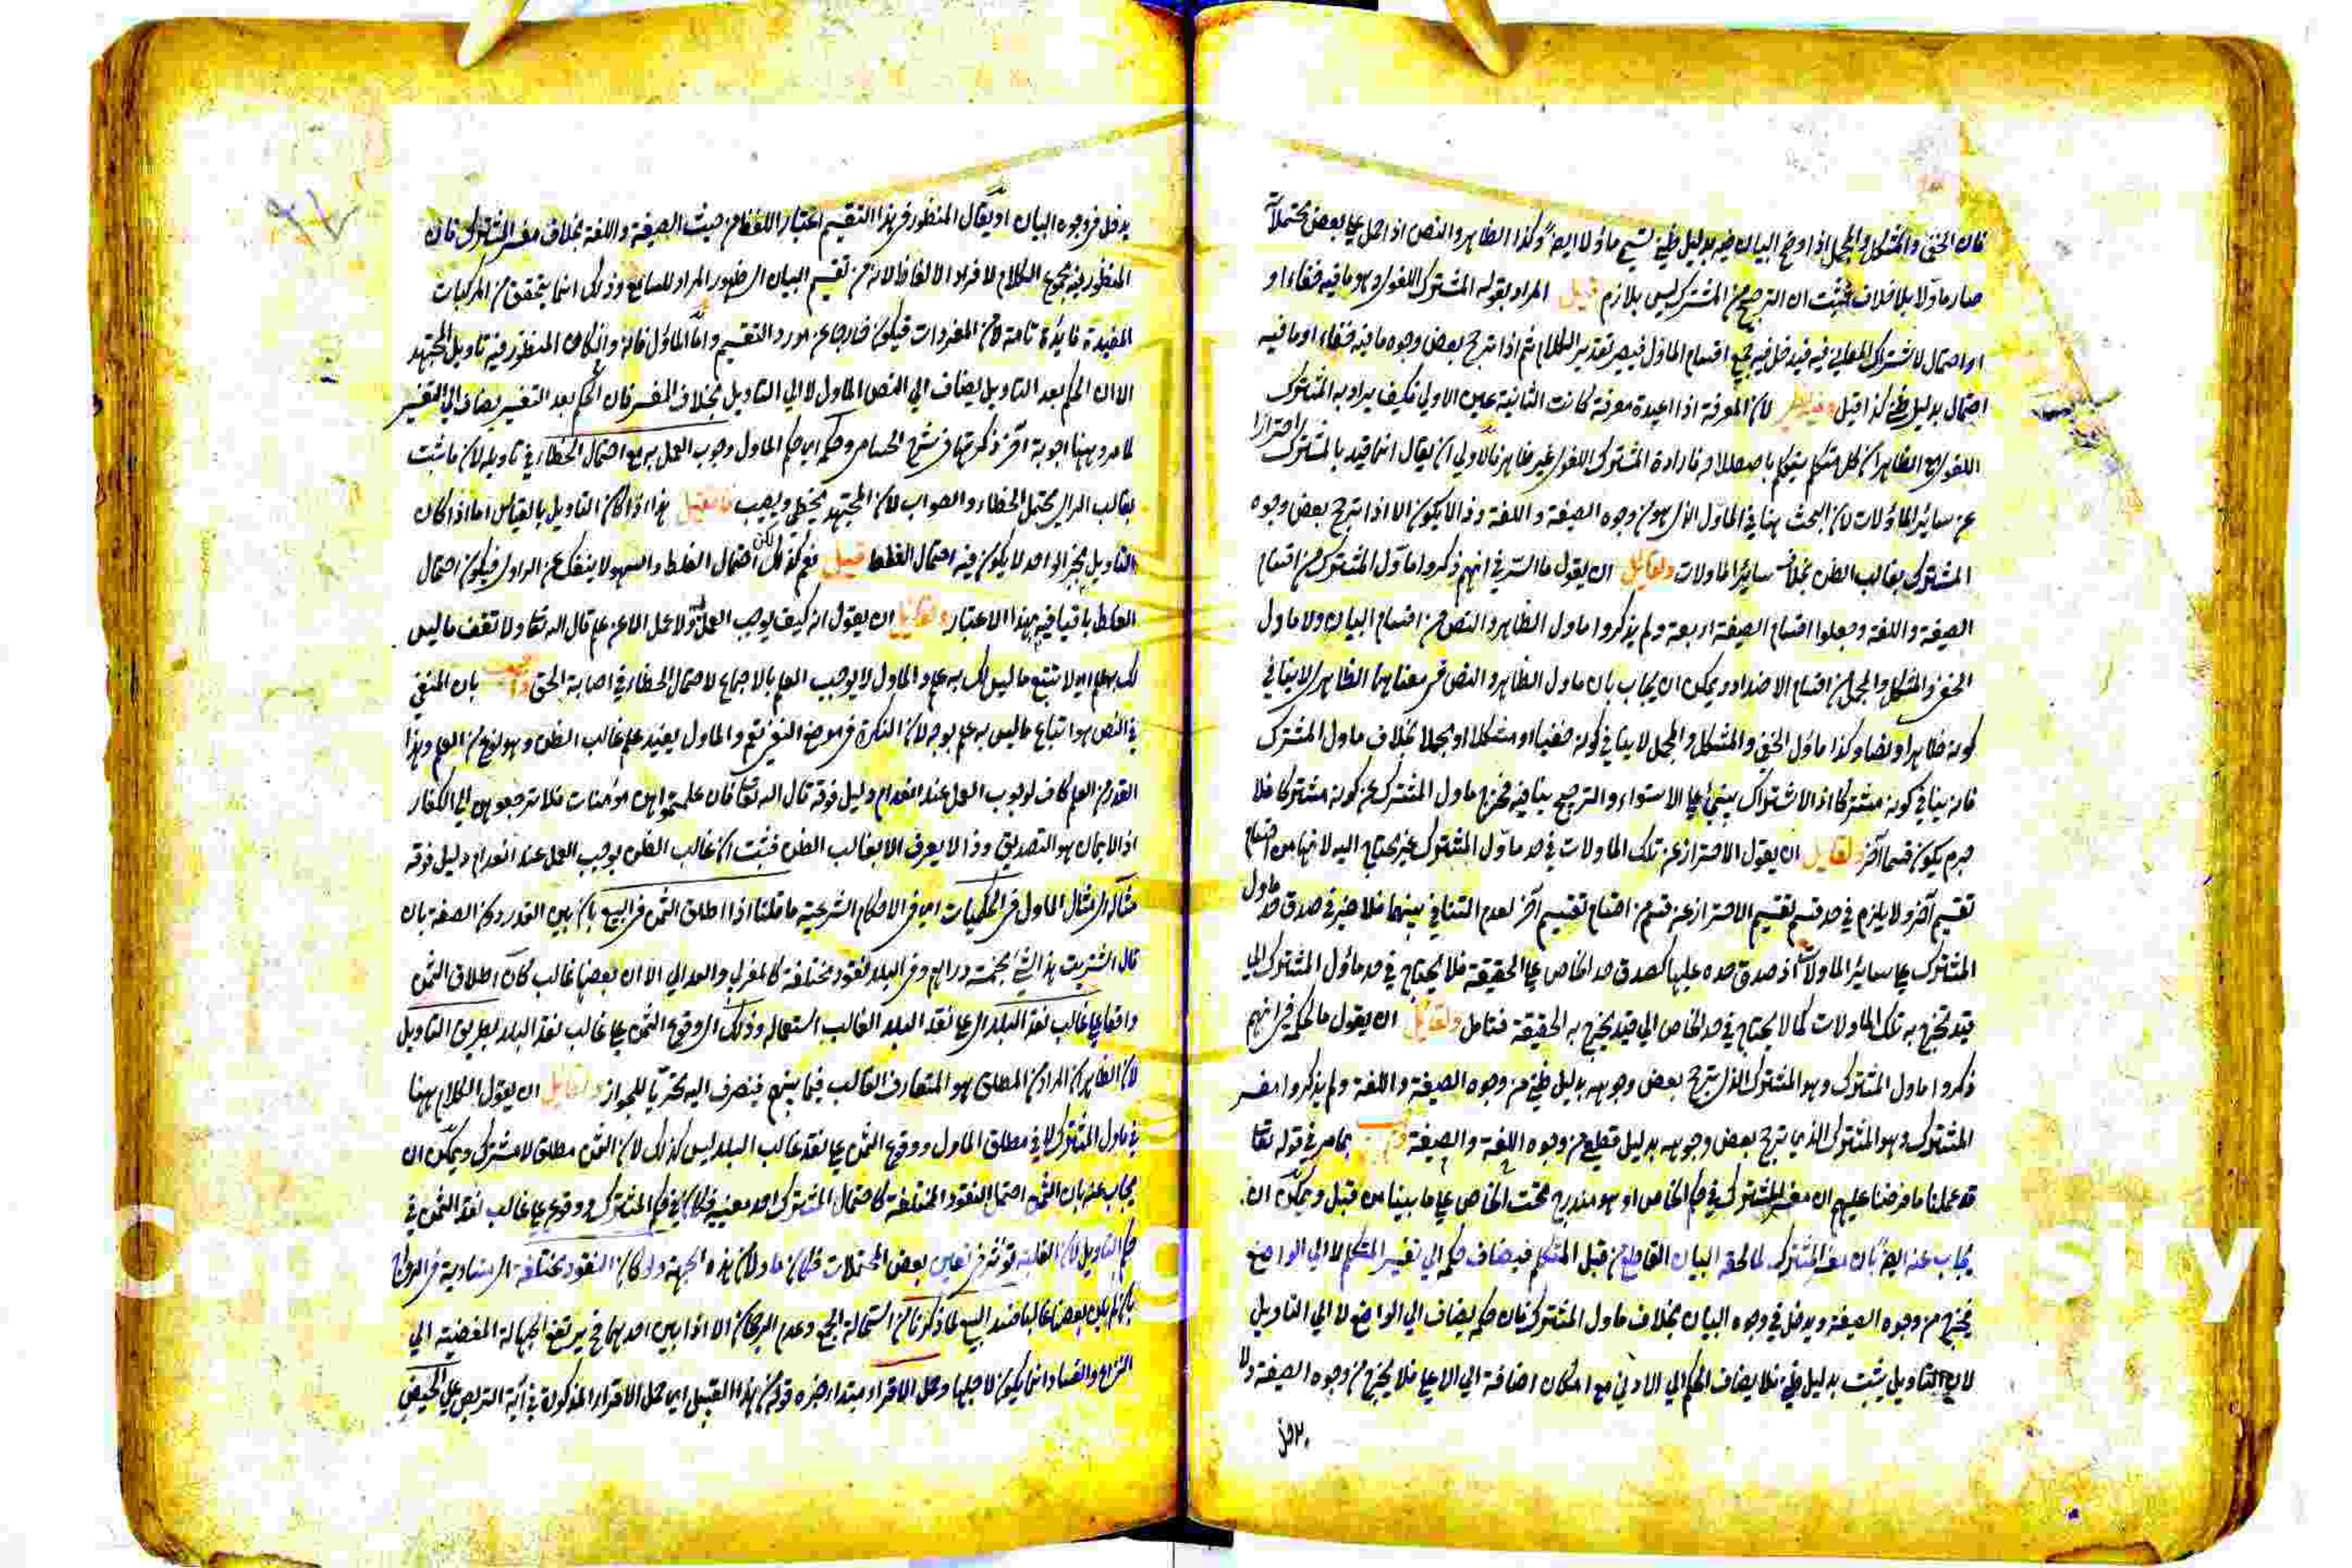 فان الخفي والمشكل والمجمل اذا اوضح البيان فيه بدليل ظني يسمي ماؤلا ايضا وكذا الظاهر والنص اذا حمل على بعض محتملاته
صار ماولا بلا خلاف فثبت ان الترجيح من المشترك ليس بلازم قيل المراد بقوله المشترك اللغوي وهو ما فيه خفاء او
او احتمال لاشتراك المعاني فيه فيدخل فيه جميع اقسام الماول فيصير تقدير الكلام ثم اذا ترجح بعض وجوه ما فيه خفاء او ما فيه
احتمال بدليل ظني كذا قيل وفيه نظر لان المعرفة اذا اعيدة معرفة كانت الثانية عين الاولي فكيف يراد به المشترك
اللغوي مع الظاهر ان كل متكلم يتكلم باصطلاحه فارادة المشترك اللغوي غير ظاهر فالاولي ان يقال انما قيد بالمشترك احترازا
عن سائر الماؤلات لان البحث هنا في الماول الذي هو من وجوه الصيغة واللغة وذا لا يكون الا اذا ترجح بعض وجوه
المشترك بغالب الظن بخلاف سائر الماولات ولقائل ان يقول ما السر في انهم ذكروا ماول المشترك من اقسام
الصيغة واللغة وجعلوا اقسام الصيغة اربعة ولم يذكروا ماول الظاهر والنص من اقسام البيان ولا ماول
الخفي والمشكل والمجمل من اقسام الاضداد ويمكن ان يجاب بان ماول الظاهر والنص في معناهما الظاهر لا ينافي
كونه ظاهرا ونصا وكذا ماؤل الخفي والمشكل والمجمل لا ينافي كونه خفيا او مشكلا او مجملا بخلاف ماول المشترك
فانه ينافي كونه مشتركا اذ الاشتراك ينبئ على الاستواء والترجيح ينافيه فخرج ماول المشترك عن كونه مشتركا فلا
جرم يكون قسما آخر ولقائل ان يقول الاحتراز عن تلك الماولات في حد ماول المشترك غير محتاج اليه لانها من اقسام
تقسيم آخر ولا يلزم في حد قسم تقسيم الاحتراز عن قسم من اقسام تقسيم آخر لعدم التنافي بينهما فلا ضير في صدق حد ماول
المشترك على سائر الماولات اذ صدق حده عليها كصدق حد الخاص على الحقيقة فلا يحتاج في حد ماؤل المشترك الي
قيد تخرج به تلك الماولات كما لا يحتاج في حد الخاص الي قيد يخرج به الحقيقة فتامل ولقائل ان يقول ما الحكمة في انهم
ذكروا ماول المشترك وهو المشترك الذي يترجح بعض وجوهه بدليل ظني من وجوه الصيغة واللغة ولم يذكروا مفسر
المشترك وهو المشترك الذي ترجح بعض وجوهه بدليل قطعي من وجوه اللغة والصيغة بما مر في قوله تعالى
قد علمنا ما فرضنا عليهم ان مفسر المشترك في حكم الخاص او هو مندرج تحت الخاص على ما بينا من قبل ويمكن ان
يجاب عنه ايضا بان مفسر المشترك لما لحقه البيان القاطع من قبل المتكلم فيضاف حكمه الي تفسير المتكلم لا الي الواضع
فيخرج من وجوه الصيغة ويدخل في وجوه البيان بخلاف ماول المشترك فان حكمه يضاف الي الواضع لا الي التاويل
لان التاويل يثبت بدليل ظني فلا يضاف الحكم الي الادني مع امكان اضافته الي الاعلي فلا يخرج من وجوه الصيغة ولا
يدخل
يدخل في وجوه البيان او يقال المنظور في هذا التقسيم اعتبار اللفظ من حيث الصيغة واللغة بخلاف مفسر المشترك فان
المنظور فيه مجموع الكلام لا فراد الالفاظ لانه من تقسيم البيان اي ظهور المراد للسامع وذلك انما يتحقق من المركبات
المفيدة فايدة تامة لا من المفردات فيكون خارجا عن مورد التقسيم واما الماؤل فانه وان كان المنظور فيه تاويل المجتهد
الا ان الحكم بعد التاويل يضاف الي النص الماول لا الي التاويل بخلاف المفسر فان الحكم بعد التفسير يضاف الي التفسير
لما مر وههنا اجوبة آخر ذكرتها في شرح الحسامي وحكمه اي حكم الماول وجوب العمل به مع احتمال الخطاء في تاويله لان ما ثبت
بغالب الراي يحتمل الخطاء والصواب لان المجتهد يخطئ ويصيب فان قيل هذا اذا كان التاويل بالقياس اما اذا كان
التاويل بخبر الواحد لا يكون فيه احتمال الغلط قيل نعم كذلك لكن احتمال الغلط والسهو لا ينفك عن الراوي فيكون احتمال
الغلط باقيا فيه بهذا الاعتبار ولقائل ان يقول انه كيف يوجب العمل ولا عمل الا عن علم قال الله تعالى ولا تقف ما ليس
لك به علم اي لا تتبع ما ليس لك به علم والماول لا يوجب العلم بالاجماع لاحتمال الخطاء في اصابة الحق واجيب بان المنفي
في النص هو اتباع ما ليس به علم بوجه لان النكرة في موضع النفي تعم والماول يفيد علم غالب الظن وهو نوع من العلم وهذا
القدر من العلم كاف لوجوب العمل عند انعدام دليل فوقه قال الله تعالى فان علمتموهن مؤمنات فلا ترجعوهن الي الكفار
اذ الايمان هو التصديق وذا لا يعرف الا بغالب الظن فثبت ان غالب الظن يوجب العمل عند انعدام دليل فوقه
مثاله اي مثال الماول في الحكميات اي في الاحكام الشرعية ما قلنا اذا اطلق الثمن في البيع بان بين القدر دون الصفة بان
قال اشتريت هذا الشئ بخمسة دراهم وفي البلد نقود مختلفة كالمغربي والعدالي الا ان بعضها غالب كان اطلاق الثمن
واقعا على غالب نقد البلد اي على نقد البلد الغالب استعماله وذلك اي وقوع الثمن على غالب نقد البلد بطريق التاويل
لان الظاهر ان المراد من المطلق هو المتعارف الغالب فيما بينهم فينصرف اليه تحريا للجواز ولقائل ان يقول الكلام ههنا
في ماول المشترك لا في مطلق الماول ووقوع الثمن على نقد غالب البلد ليس كذلك لان الثمن مطلق لا مشترك ويمكن ان
يجاب عنه بان الثمن احتمل النقود المختلفة كاحتمال المشترك احد معنييه فكان في حكم المشترك ووقوعه على غالب نقد الثمن في
حكم التاويل لان الغلبة تؤثر في تعيين بعض المحتملات فكان ماولا من هذه الجهة ولو كان النقود مختلفة اي متساوية في الرواج
بان لم يكن بعضها غالبا فسد البيع لما ذكرنا من استحالة الجمع وعدم الرجحان الا اذا بين احدهما فحينئذ يرتفع الجهالة المفضية الي
النزاع والفساد انما يكون لاجلها وحمل الاقراء مبتدا وخبره قوله من هذا القبيل اي حمل الاقراء المذكورة في آية التربص على الحيض